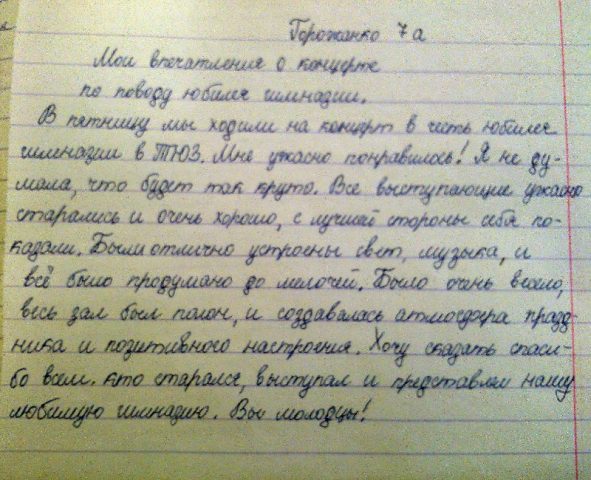 Горожанко 7а
Мои впечатления о концерте
по поводу юбилея гимназии.
В пятницу мы ходили на концерт в честь юбилея
гимназии в ТЮЗ. Мне ужасно понравилось! Я не ду-
мала, что будет так круто. Все выступающие ужасно
старались и очень хорошо, с лучшей стороны себя по-
казали. Были отлично устроены свет, музыка, и
всё было продумано до мелочей. Было очень весело,
весь зал был полон, и создавалась атмосфера празд-
ника и позитивного настроения. Хочу сказать спаси-
бо всем, кто старался, выступал и представлял нашу
любимую гимназию. Вы молодцы!